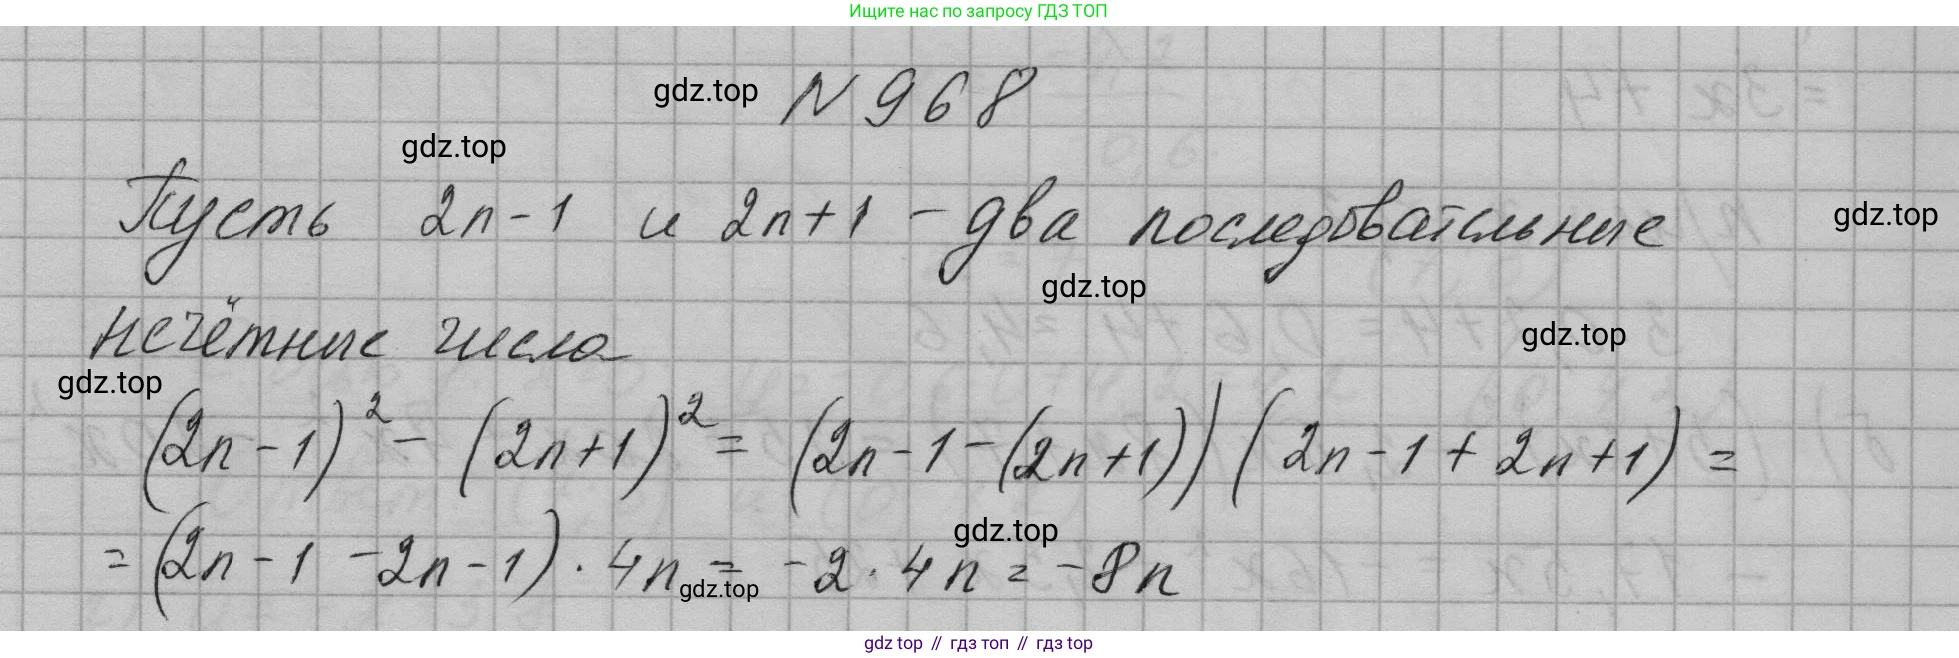 Ищите нас по запросу ГДЗ ТОП
gdz.top N 968
gdz.top
Пусть 2n-1 и 2n+1 - два последовательные gdz.top
gdz.top
нечётные числа gdz.top
gdz.top
(2n-1)² - (2n+1)² = (2n-1-(2n+1))(2n-1+2n+1) =
gdz.top
= (2n-1-2n-1)·4n = -2·4n = -8n
gdz.top
gdz top // гдз топ // гдз top